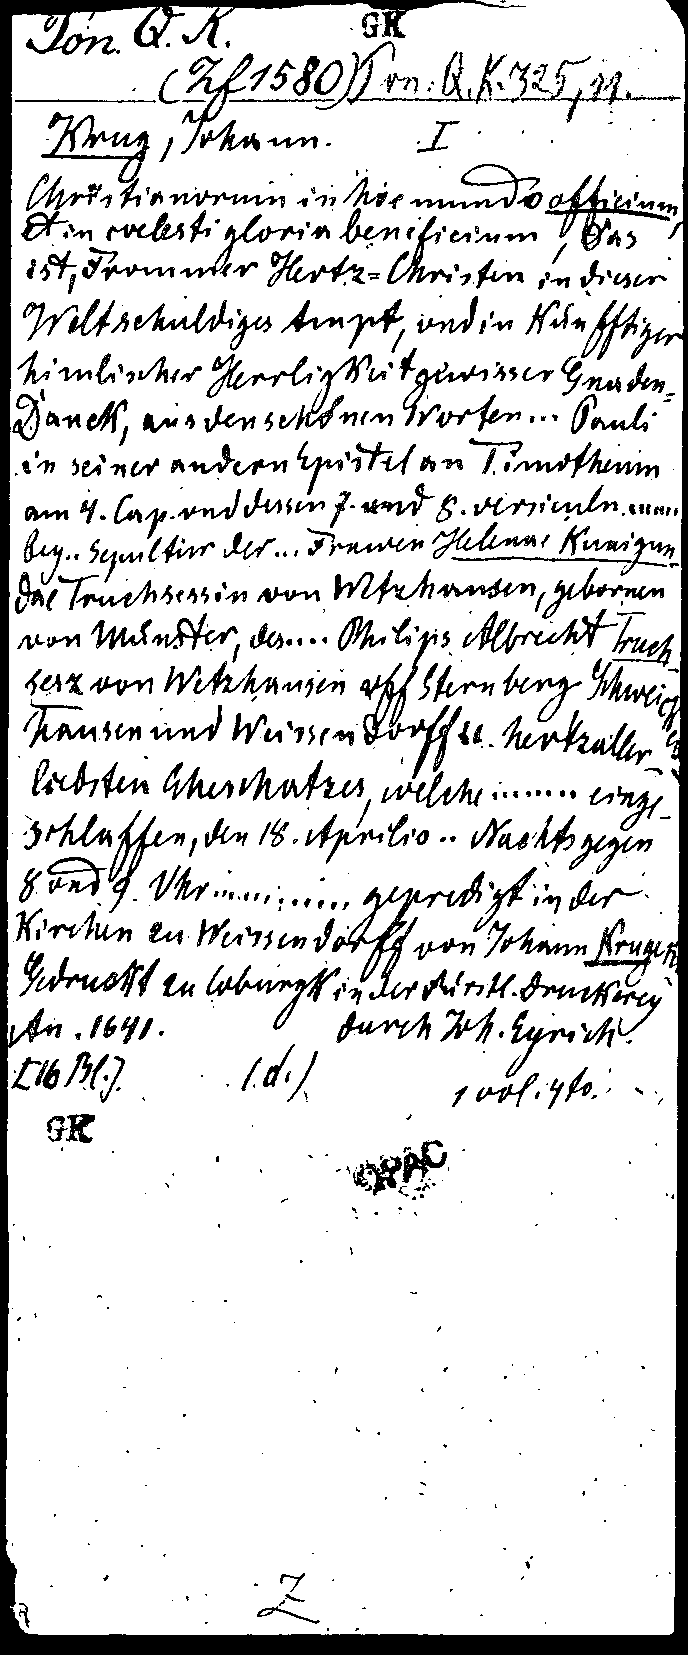 Pon. Q. K. GK
(Zf 1580) Pon. Q. K. 325, 11.
Krug, Johann. I
Christianorum in hoc mundo officium,
et in coelesti gloria beneficium, Das
ist, Frommer Hertz=Christen in dieser
Welt schuldiges Ampt, und in Künfftiger
himlischer Herrligkeit gewisser Gnaden=
Danck, aus den schönen Worten... Pauli
in seiner andern Epistel an Timotheum
am 4. Cap. und dessen 7. und 8. versiculn.....
Bey.. Sepultur der... Frawen Helenae Kunigun-
dae Truchsessin von Wetzhausen, gebornen
von Münster, des.... Philips Albrecht Truch-
sesz von Wetzhausen uff Sternberg Schweick
hausen und Weissendorff sc. hertzaller-
liebsten Eheschatzes, welche....... einge-
schlaffen, den 18. Aprilis.. Nachts gegen
8 und 9. Uhr.......... gepredigt in der
Kirchen zu Weissendorff von Johann Krugen
Gedruckt zu Coburgk in der Fürstl. Druckerey
An. 1641. durch Joh. Eyrich.
[16 Bl.]. (d.) 1 vol. 4to.
GK
OPAC
Z